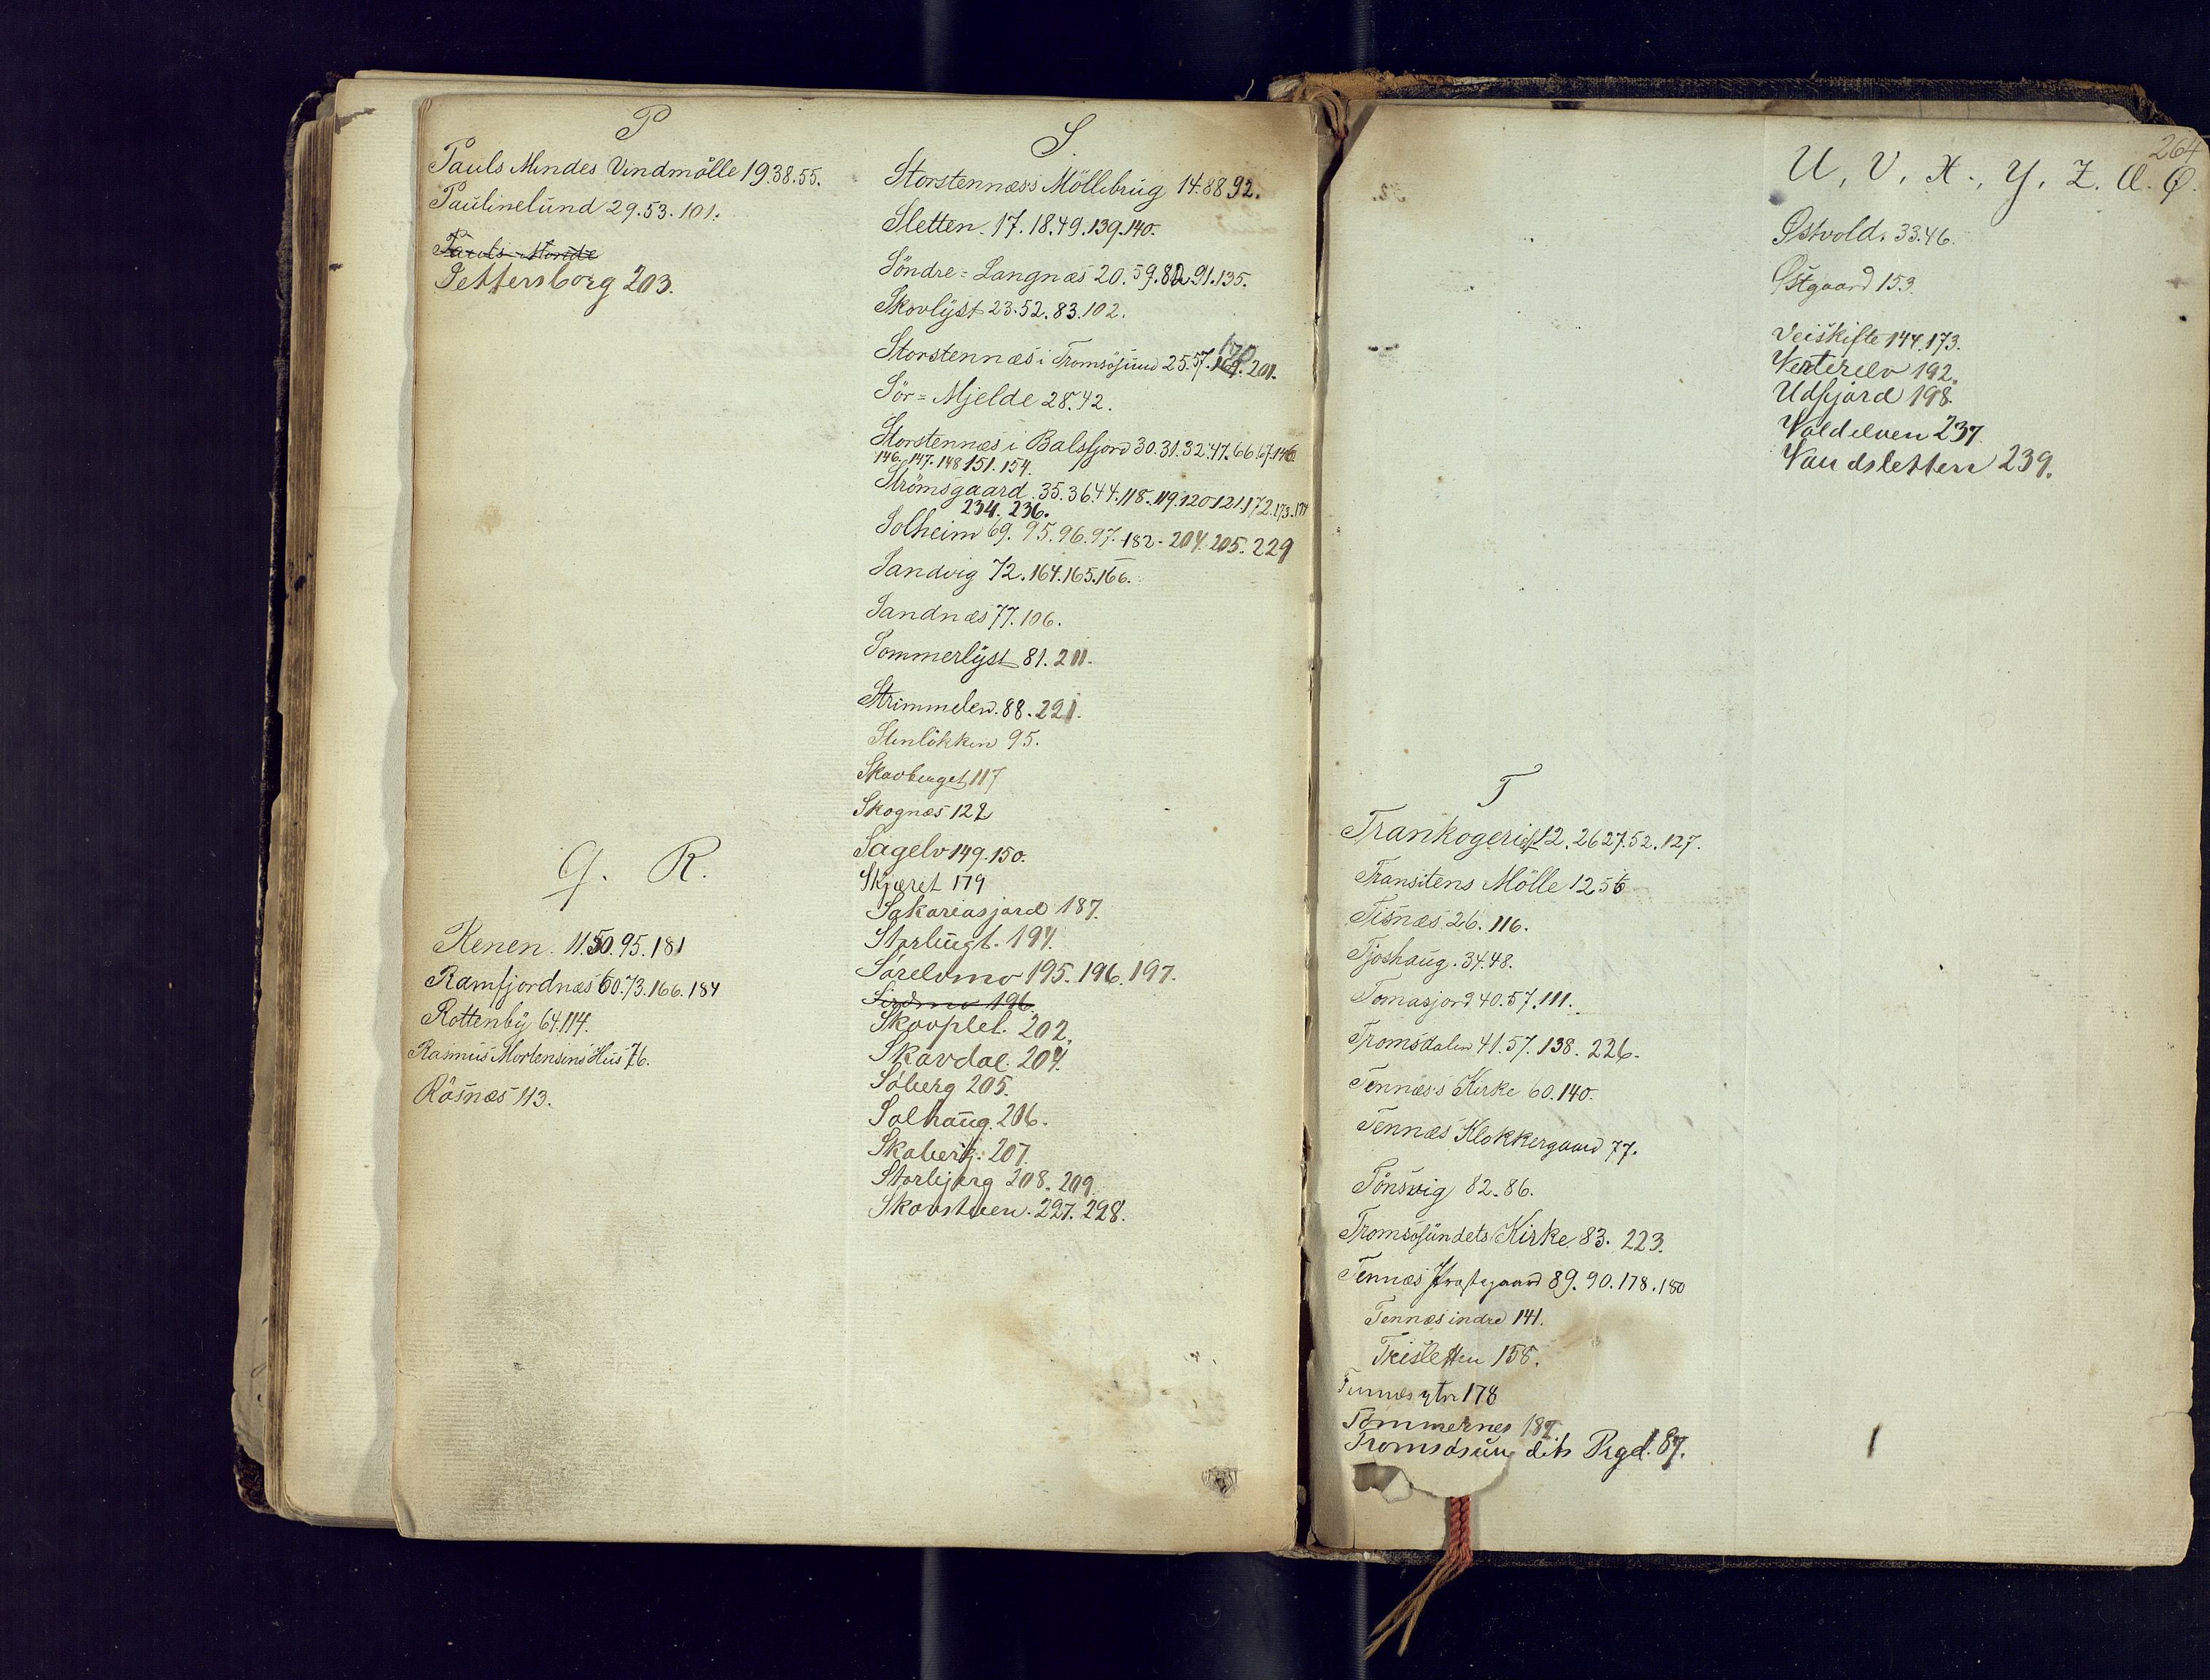 P
Pauls Mindes Vindmölle 19.38.55.
Paulinelund 29.53.101.
Pauls Minde
Pettersborg 203.
Q. R.
Renen. 11.50.95.181
Ramfjordnæs 60.73.166.184
Rottenby 64.114.
Rasmus Mortensens Hus 76.
Råsnæs 113.
S.
Storstennæss Möllebrug 14.88 92.
Sletten. 17.18.49.139.140.
Söndre=Langnæs 20.59.82.91.135.
Skovlyst 23.52.83.102.
Storstennæs i Tromsösund 25.57. 170. 201.
Sör=Mjelde 28.42.
Storstennæs i Balsfjord 30.31.32.47.66 67.146
146. 147. 148 151. 154.
Strömsgaard. 35.36.44.118.119.120.121.172.173.174
234. 236.
Solheim 69. 95.96.97. 182- 204. 205. 229
Sandvig 72.164.165.166.
Sandnæs 77.106.
Sommerlyst 81. 211.
Strimmelen. 88. 221.
Stenlökken 95.
Skavberget 117
Skognæs 122
Sagelv 149.150.
Skjæret 179
Sakariasjord 187.
Storbugt. 194.
Sörelvmo 195. 196. 197.
196.
Skovplet. 202.
Skavdal. 204.
Söberg 205.
Solhaug. 206.
Skoberg. 207.
Storbjerg 208. 209.
Skovstuen. 227. 228.
264
U, V, X., Y, Z. Æ. Ø.
Østvold. 33.46.
Østgaard 153.
Veiskifte 144.173.
Vesterelv 192.
Udfjord 198.
Voldelven 237.
Vandsletten 239.
T
Trankogeriet 12. 26 27.52. 127.
Transitens Mölle 12 56
Tisnæs 26. 116.
Tjoshaug. 34.48.
Tomasjord 40.57.111.
Tromsdalen 41.57. 138. 226.
Tennæs's Kirke 60.140.
Tennæs Klokkergaard 77.
Tönsvig 82.86.
Tromsösundets Kirke 83. 223.
Tennæs Præstegaard 89.90.178.180
Tennæs indre 141.
Treisletten 158.
Tennæs ytre 178
Tömmernes 187.
Tromsösundets Prgd. 87.